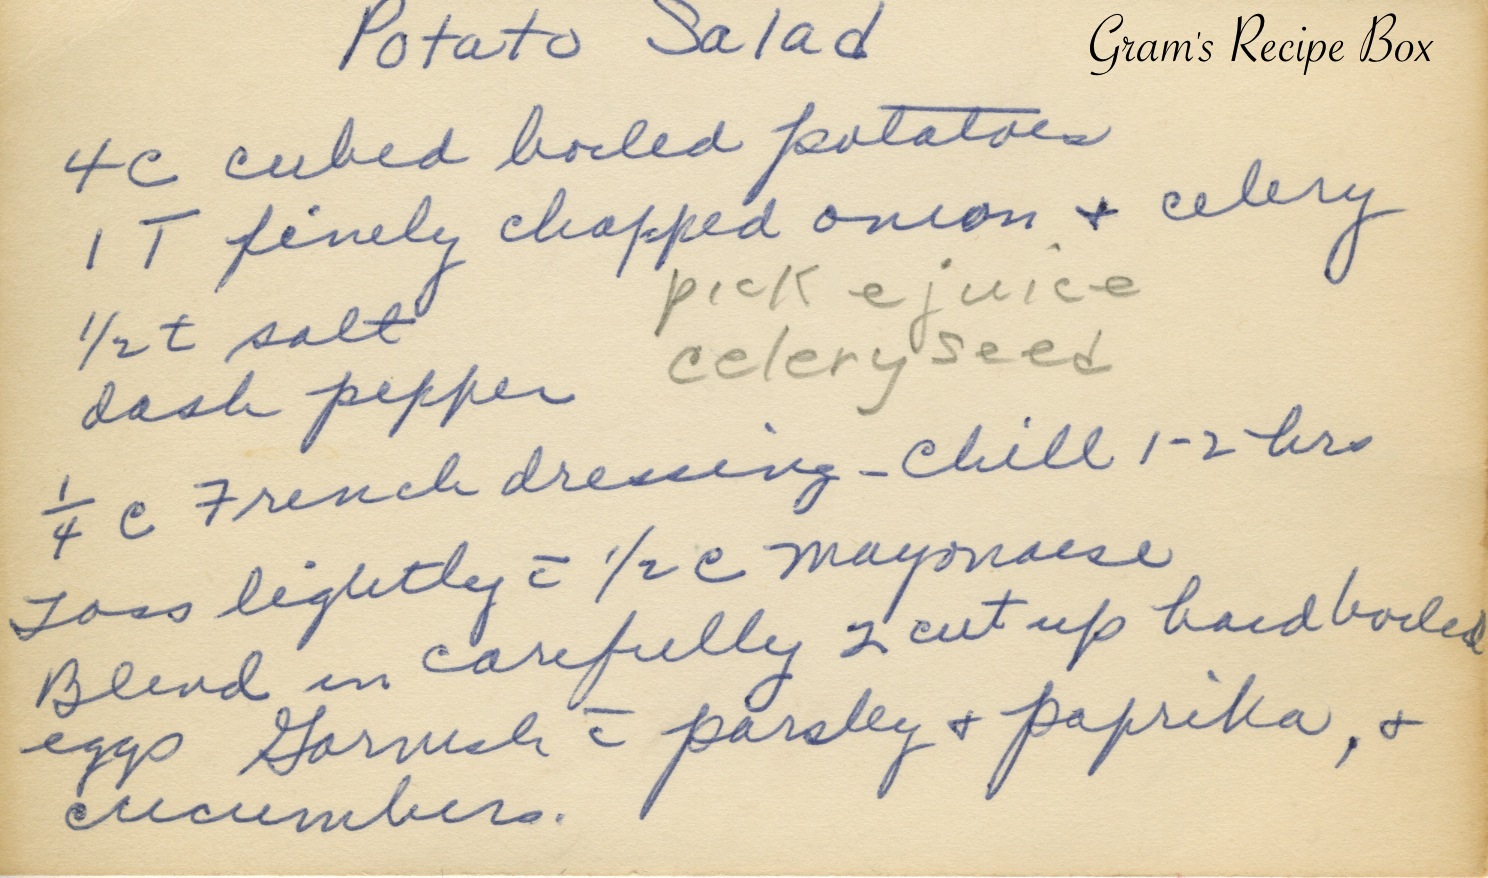 Potato Salad
Gram's Recipe Box
4 C cubed boiled potatoes
1 T finely chopped onion + celery
pick e juice
1/2 t salt
celery seed
dash pepper
1/4 c French dressing - Chill 1-2 hrs
Toss lightly c̄ 1/2 c mayonaise
Blend in carefully 2 cut up hard boiled
eggs Garnish c̄ parsley + paprika, +
cucumbers.